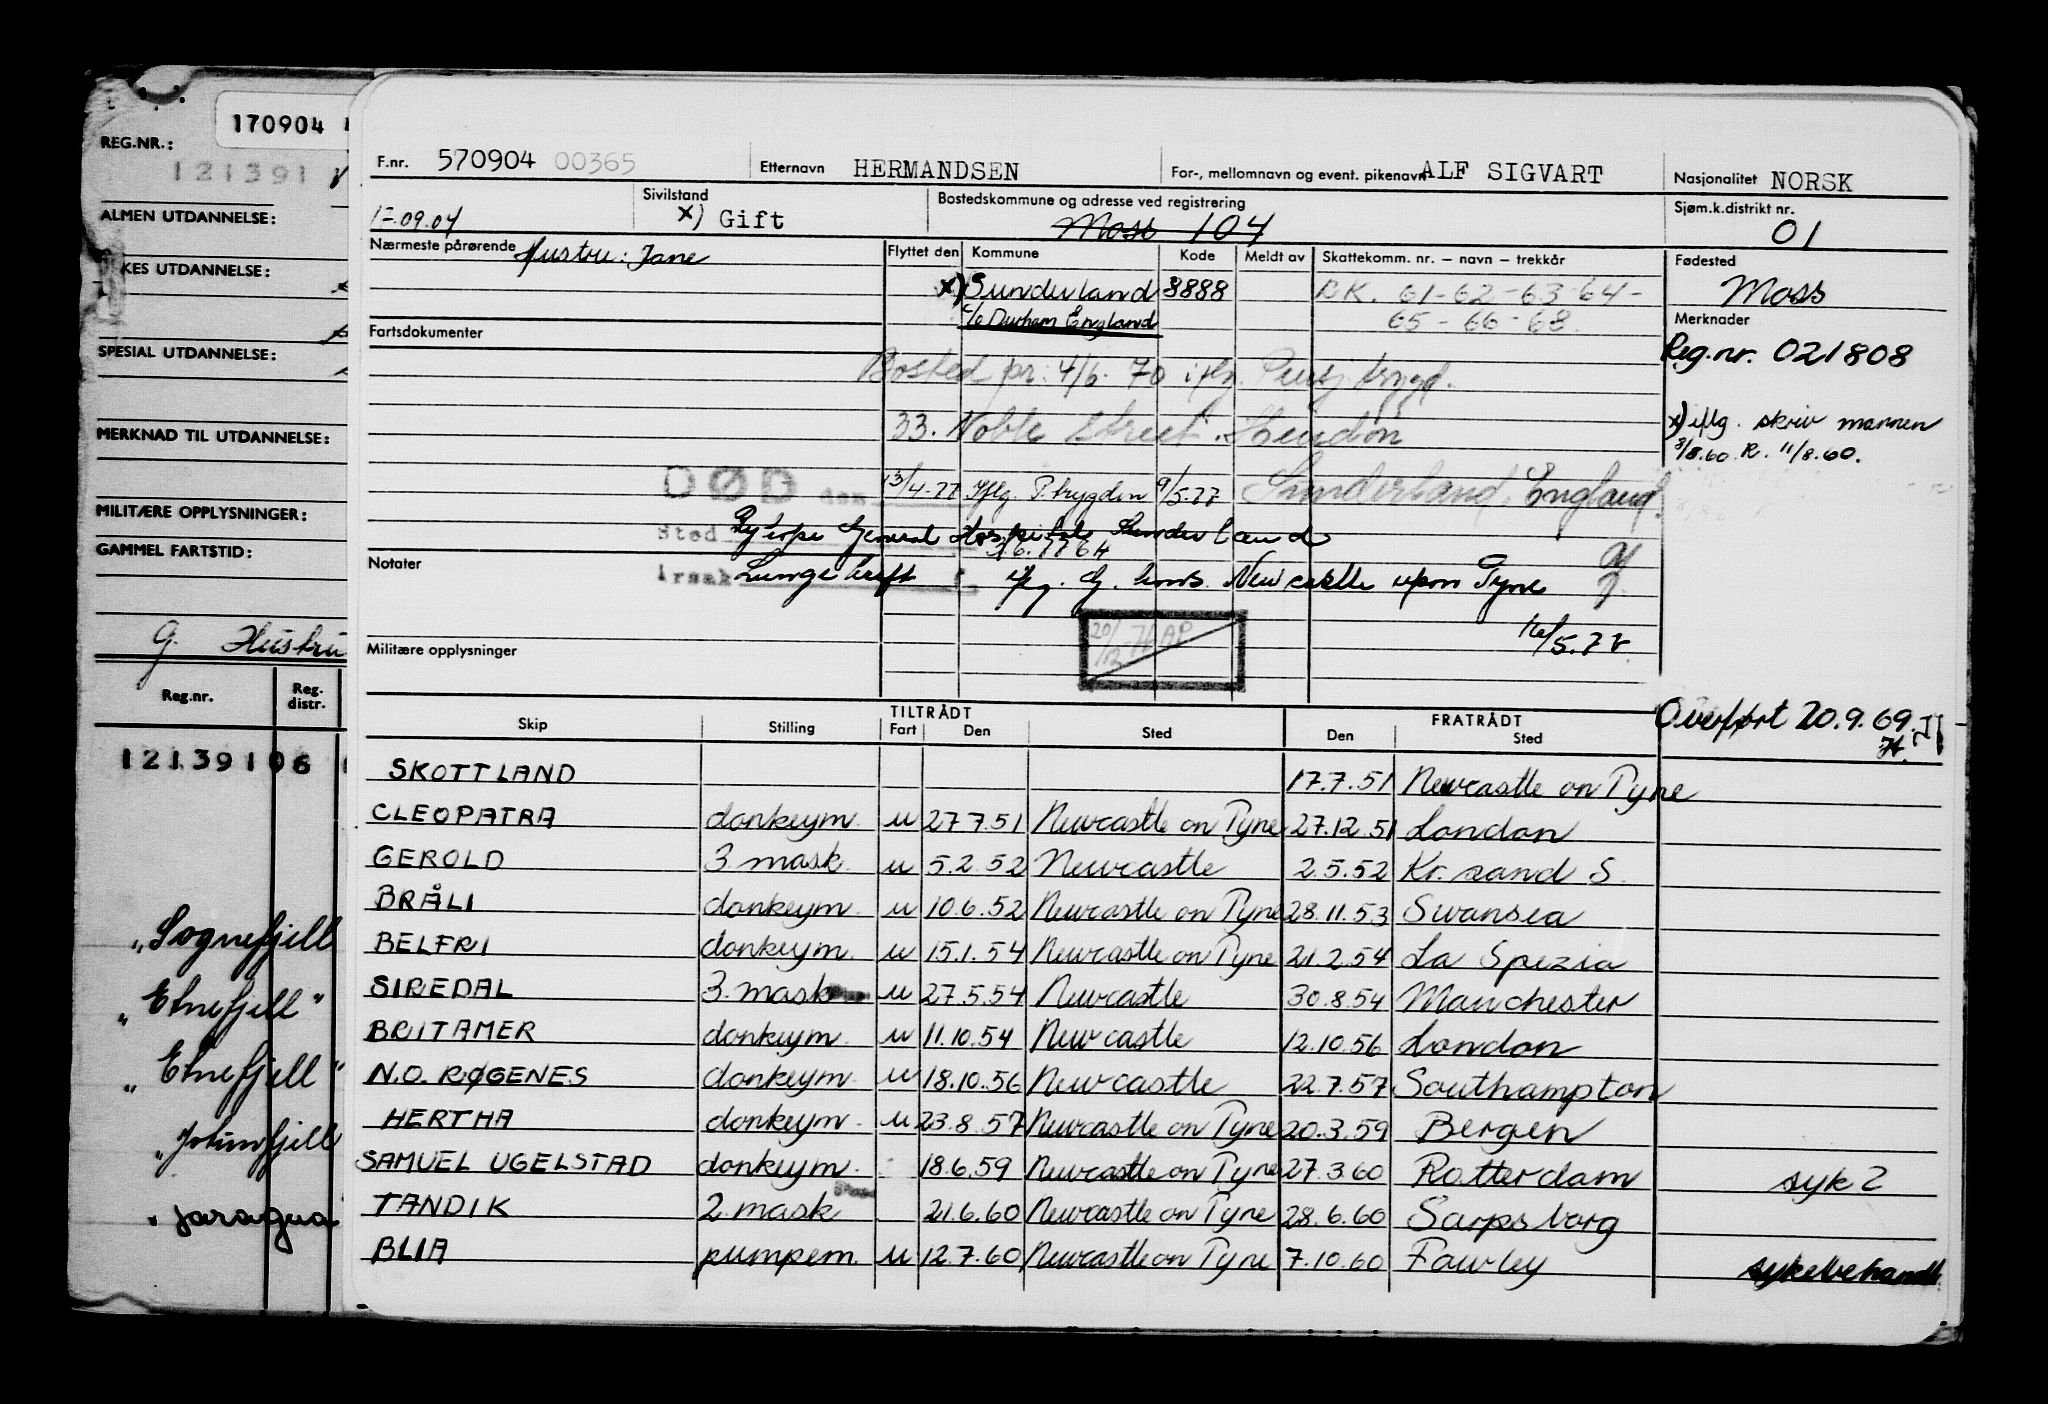 170904
REG.NR.:
121391
ALMEN UTDANNELSE:
KES UTDANNELSE:
SPESIAL UTDANNELSE:
MERKNAD TIL UTDANNELSE:
MILITÆRE OPPLYSNINGER:
GAMMEL FARTSTID:
G. Hustru
Reg.nr. Reg. distr.
12139106
"Sognefjell
"Etnefjell"
"Etnefjell"
"Jotunfjell
" Jaragua
F.nr. 570904 00365 Etternavn HERMANDSEN For-, mellomnavn og event. pikenavn ALF SIGVART Nasjonalitet NORSK
09.04 Sivilstand x) Gift Bostedskommune og adresse ved registrering Moss 104 Sjøm.k.distrikt nr. 01
Nærmeste pårørende Hustru: Jane Flyttet den Kommune Kode Meldt av Skattekomm. nr. – navn – trekkår Fødested
x) Sunderland 8888 61-62-63-64- Moss
Fartsdokumenter c/o Durham England 65-66-68 Merknader
Reg.nr. 021808
Bosted pr. 4/6. 70 iflg. Pensj.trygd.
33. Noble Street. Hendon x) iflg. skriv mannen
3/8.60 R. 11/8.60.
DØD den 13/4-77 Iflg. P.trygden 9/5.77 Sunderland, England.
Sted General Hospital Sunderland
Notater
Årsak Lunge iflg. Newcastle upon Tyne
20/12
5.77
Militære opplysninger
Overført 20.9.69.
TILTRÅDT FRATRÅDT
Skip Stilling Fart Den Sted Den Sted
SKOTTLAND 17.7.51 Newcastle on Tyne
CLEOPATRA donkeym. u 27.7.51 Newcastle on Tyne 27.12.51 London
GEROLD 3. mask. u 5.2.52 Newcastle 2.5.52 Kr.sand S.
BRÅLI donkeym. u 10.6.52 Newcastle on Tyne 28.11.53 Swansea
BELFRI donkeym. u 15.1.54 Newcastle on Tyne 21.2.54 La Spezia
SIREDAL 3. mask u 27.5.54 Newcastle 30.8.54 Manchester
BRITAMER donkeym. u 11.10.54 Newcastle 12.10.56 London
N.O. RØGENES donkeym. u 18.10.56 Newcastle 22.7.57 Southampton
HERTHA donkeym. u 23.8.57 Newcastle on Tyne 20.3.59 Bergen
SAMUEL UGELSTAD donkeym. 18.6.59 Newcastle on Tyne 27.3.60 Rotterdam syk 2
TANDIK 2. mask 21.6.60 Newcastle on Tyne 28.6.60 Sarpsborg
BLIA pumpem. u 12.7.60 Newcastle on Tyne 7.10.60 Fawley sykebehandl.